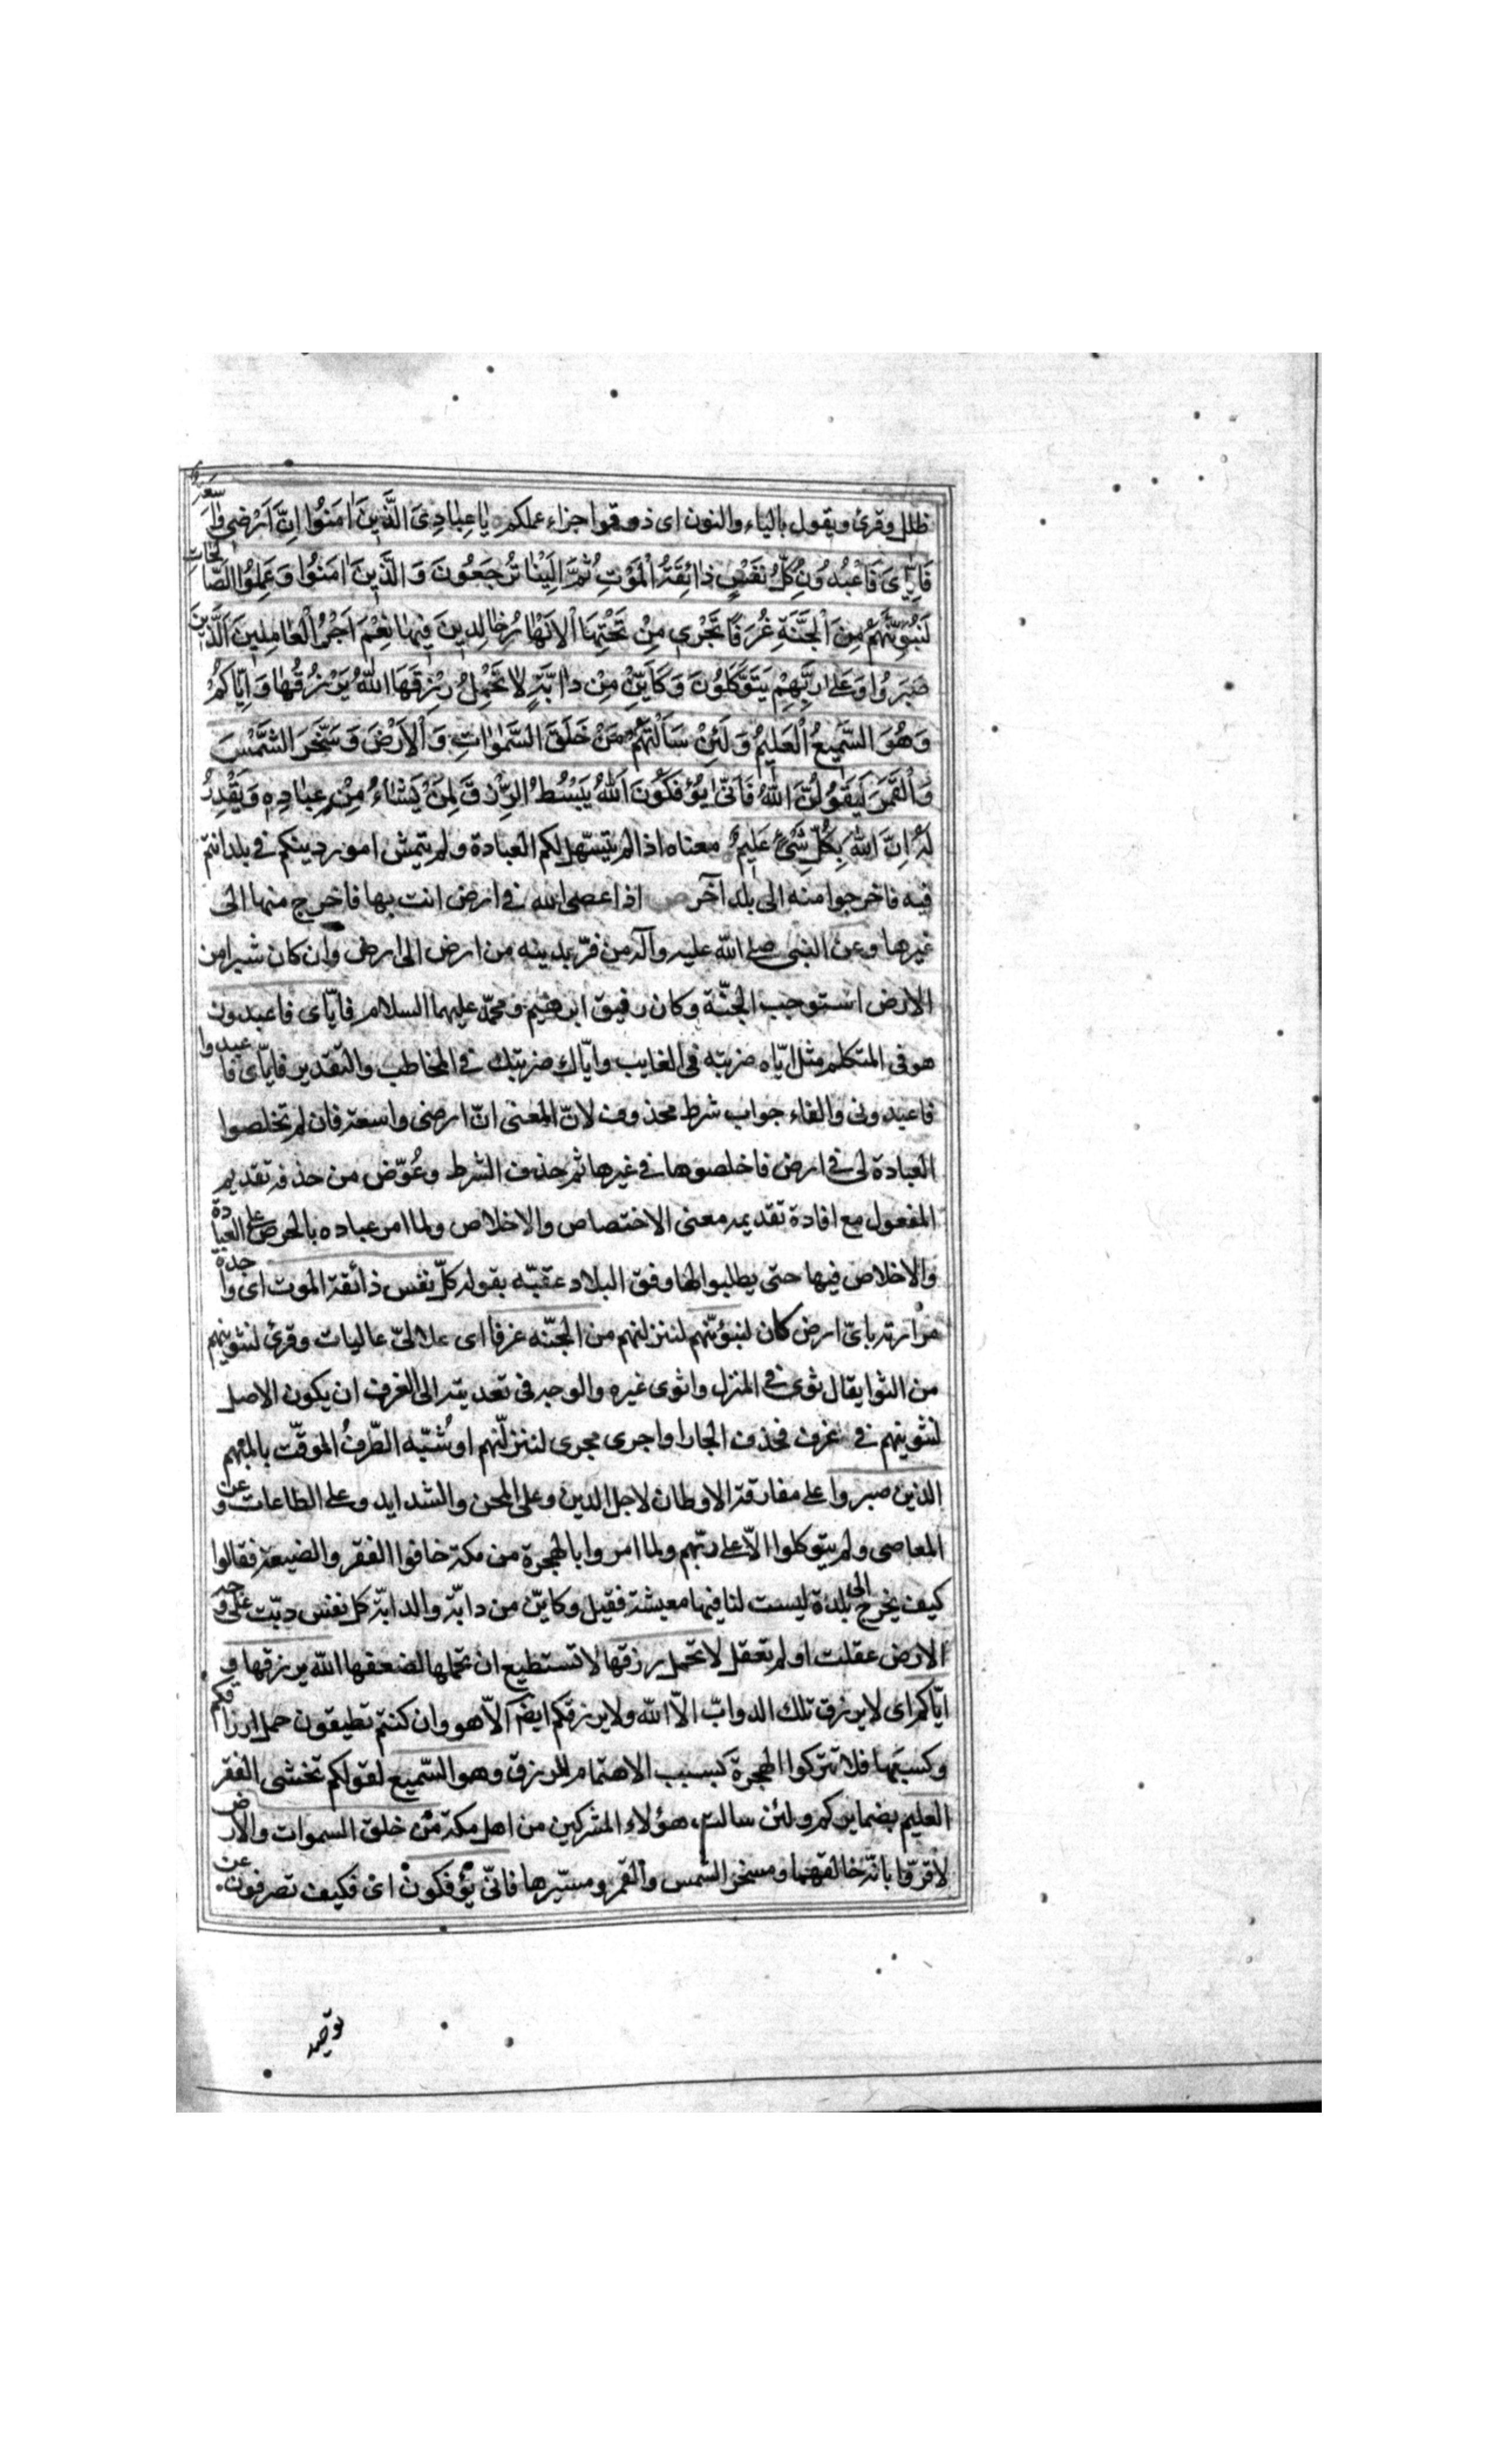 ظلل وقرئ ويقول بالياء والنون اى ذوقوا جزاء عملكم يَا عِبَادِىَ الَّذِينَ اٰمَنُوا اِنَّ اَرْضِى وَاسِعَةٌ
فَاِيَّاىَ فَاعْبُدُونِ كُلُّ نَفْسٍ ذَائِقَةُ الْمَوْتِ ثُمَّ اِلَيْنَا تُرْجَعُونَ وَ الَّذِينَ اٰمَنُوا وَ عَمِلُوا الصَّالِحَاتِ
لَنُبَوِّئَنَّهُمْ مِنَ الْجَنَّةِ غُرَفًا تَجْرِى مِنْ تَحْتِهَا الْاَنْهَارُ خَالِدِينَ فِيهَا نِعْمَ اَجْرُ الْعَامِلِينَ اَلَّذِينَ
صَبَرُوا وَ عَلٰى رَبِّهِمْ يَتَوَكَّلُونَ وَ كَاَيِّنْ مِنْ دَابَّةٍ لَا تَحْمِلُ رِزْقَهَا اللّٰهُ يَرْزُقُهَا وَ اِيَّاكُمْ
وَ هُوَ السَّمِيعُ الْعَلِيمُ وَ لَئِنْ سَاَلْتَهُمْ مَنْ خَلَقَ السَّمٰوَاتِ وَ الْاَرْضَ وَ سَخَّرَ الشَّمْسَ
وَ الْقَمَرَ لَيَقُولُنَّ اللّٰهُ فَاَنّٰى يُؤْفَكُونَ اَللّٰهُ يَبْسُطُ الرِّزْقَ لِمَنْ يَشَاءُ مِنْ عِبَادِهِ وَ يَقْدِرُ
لَهُ اِنَّ اللّٰهَ بِكُلِّ شَىْءٍ عَلِيمٌ معناه اذا لم يتسهل لكم العبادة ولم يتمش امور دينكم فى بلد انتم
فيه فاخرجوا منه الى بلد آخر ص اذا عصى الله فى ارض انت بها فاخرج منها الى
غيرها وعن النبى صلى الله عليه وآله من فرّ بدينه من ارض الى ارض وان كان شبرا من
الارض استوجب الجنّة وكان رفيق ابرهيم ومحمّد عليهما السلام فايّاى فاعبدون
هو فى المتكلم مثل ايّاه ضربته فى الغايب وايّاك ضربتك فى المخاطب والتقدير فايّاى فاعبدوا
فاعبدونى والفاء جواب شرط محذوف لانّ المعنى انّ ارضى واسعة فان لم تخلصوا
العبادة لى فى ارض فاخلصوها فى غيرها ثم حذف الشرط وعُوّض من حذفه تقديم
المفعول مع افادة تقديمه معنى الاختصاص والاخلاص ولما امر عباده بالحرص على العبادة
والاخلاص فيها حتى يطلبوا لها وفق البلاد عقبّه بقوله كلّ نفس ذائقة الموت اى واجدة
مرارته باىّ ارض كان لنبوّئنّهم لننزلنهم من الجنّة غرفا اى علالىّ عاليات وقرئ لنثوينهم
من الثوا يقال ثوى فى المنزل واثوى غيره والوجه فى تعديته الى الغرف ان يكون الاصل
لنثوينهم فى غرف فحذف الجار او اجرى مجرى لننزلنّهم او شُبّه الظّرفُ الموقّت بالمبهم
الذين صبروا على مفارقة الاوطان لاجل الدين وعلى المحن والشدايد وعلى الطاعات وعن
المعاصى ولم يتوكلوا الّا على ربّهم ولما امروا بالهجرة من مكة خافوا الفقر والضيعة فقالوا
كيف نخرج الى بلدة ليست لنا فيها معيشة فقيل وكايّن من دابّة والدابّة كل نفس دبّت على وجه
الارض عقلت او لم تعقل لا تحمل رزقها لا تستطيع ان تحملها لضعفها الله يرزقها و
ايّاكم اى لا يرزق تلك الدوابّ الّا الله ولا يرزقكم ايضا الّا هو وان كنتم تطيقون حمل ارزاقكم
وكسبها فلا تتركوا الهجرة بسبب الاهتمام للرزق وهو السّميع لقولكم نخشى الفقر
العليم بضمايركم ولئن سالت هؤلاء المشركين من اهل مكة مَن خلق السموات والارض
لاقرّوا بانّه خالقهما ومسخر الشمس والقمر ومسيّرها فانّى يؤفكون اى فكيف تصرفون عن
توحيد